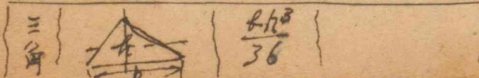 三角
h
b
bh³
36